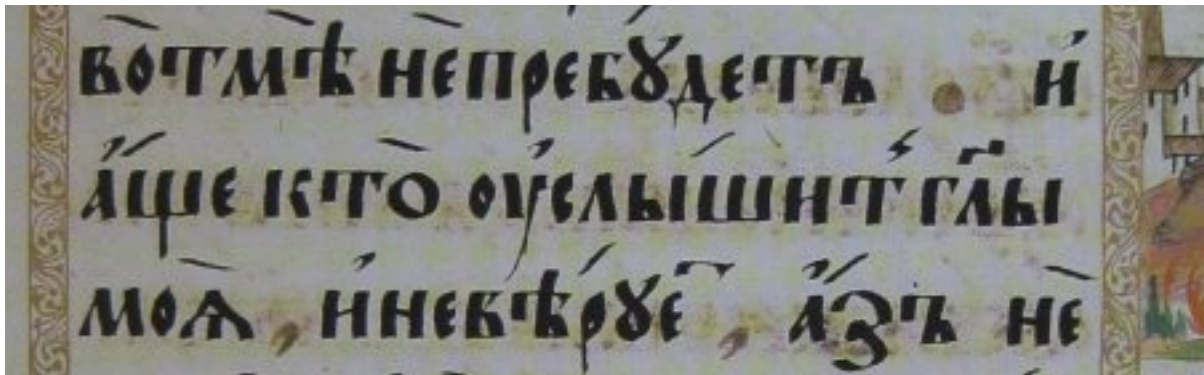 во̀тмѣ нѐпребꙋ́детъ . и҆́
а҆́ще кто̀ оу҆слы́шит гл҃ы
моѧ̀ , и҆́невѣ́рꙋеⷮ , а҆́зъ нѐ